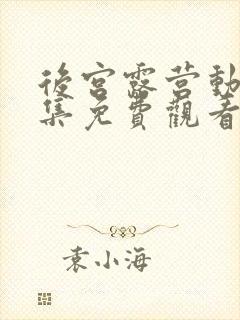 後宮露营動
集免費觀看
袁小海